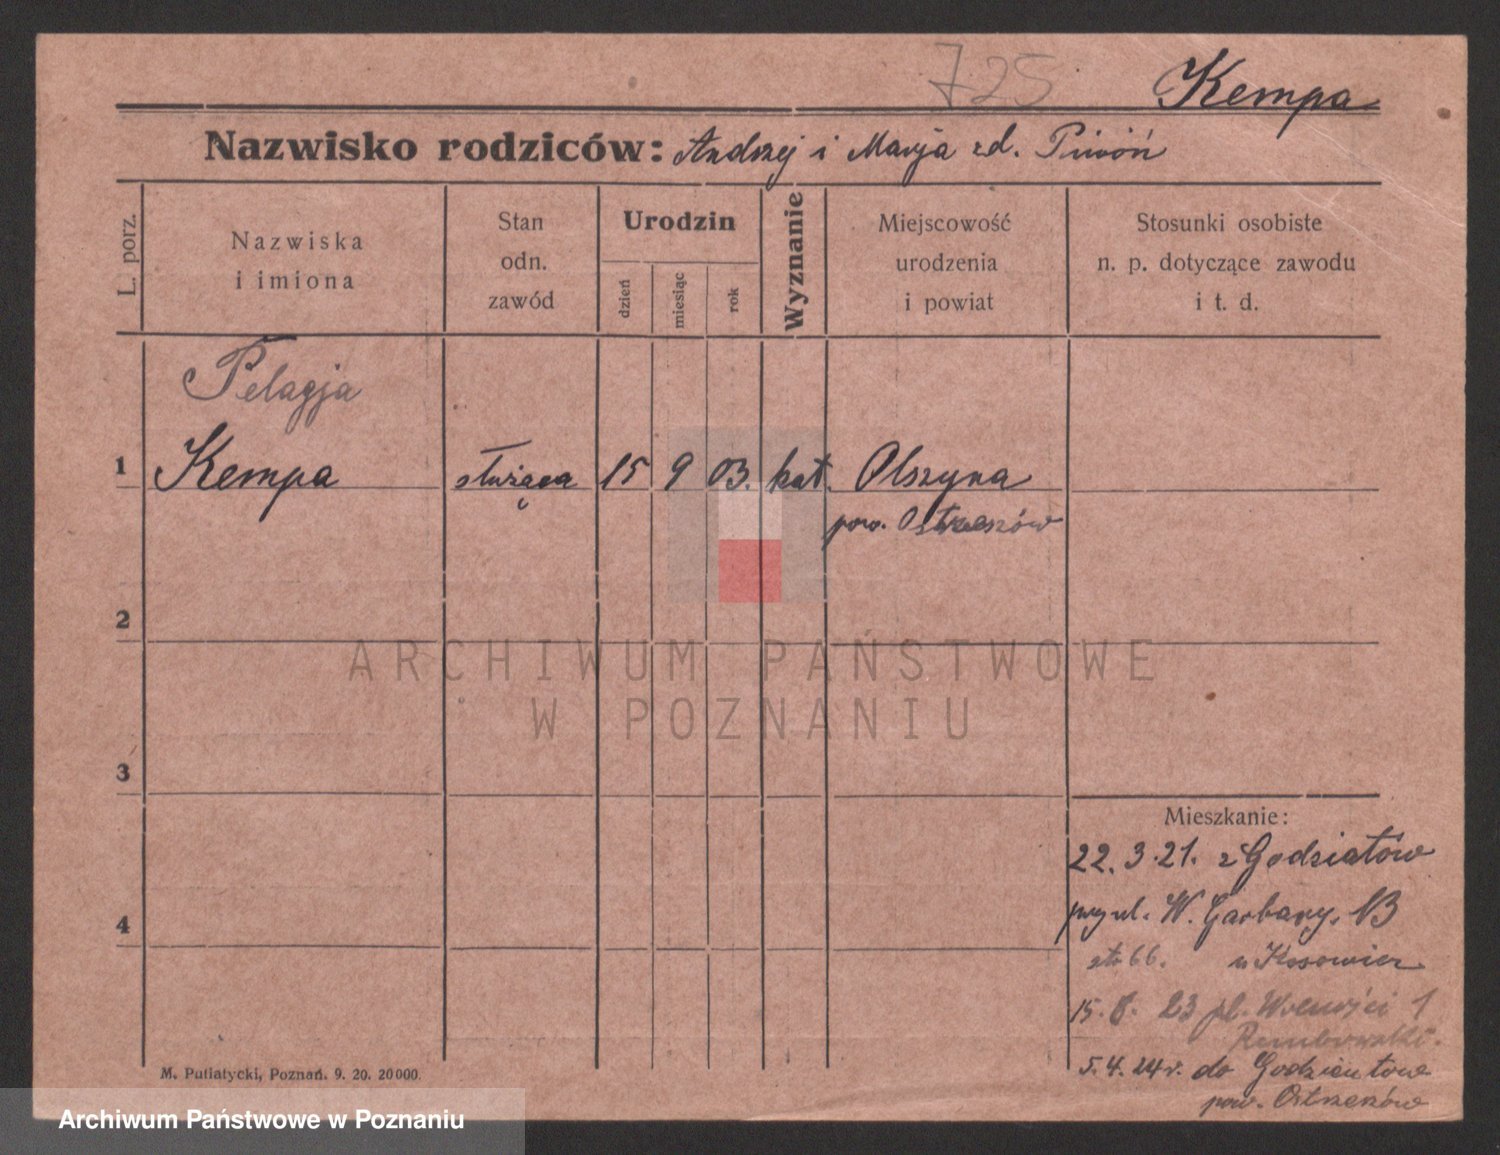 725 Kempa
Nazwisko rodziców: Andrzej i Marja zd. Piwoń
L. porz.
Nazwiska
i imiona
Stan
odn.
zawód
Urodzin
dzień
miesiąc
rok
Wyznanie
Miejscowość
urodzenia
i powiat
Stosunki osobiste
n. p. dotyczące zawodu
i t. d.
Pelagja
1 Kempa służąca 15 9 03. kat. Olszyna
pow. Ostrzeszów
2
3
4
ARCHIWUM PAŃSTWOWE
W POZNANIU
Mieszkanie:
22.3.21. z Godziatów
przy ul. W. Garbary. 13
66. u Kosowicz
15. 8. 23 pl. Wolności 1
5.4.24 r. do Godzientowe
pow. Ostrzeszów
M. Putiatycki, Poznań. 9. 20. 20000.
Archiwum Państwowe w Poznaniu